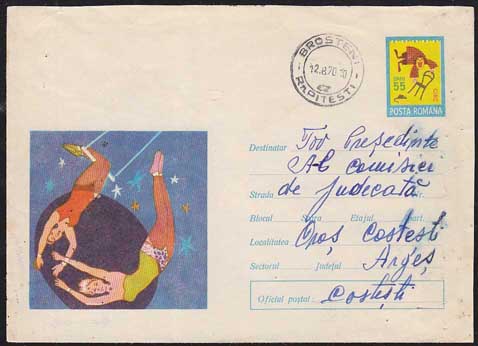 BROSTENI
12.8.70.10
RAPITESTI
BANI
55
CIRC
POSTA ROMANA
Destinatar Tov Președinte
Al comisiei
Strada de judecată Nr.
Blocul Scara Etajul Apart.
Localitatea Oraș Costești
Sectorul Județul Argeș
Oficiul poștal: Costești